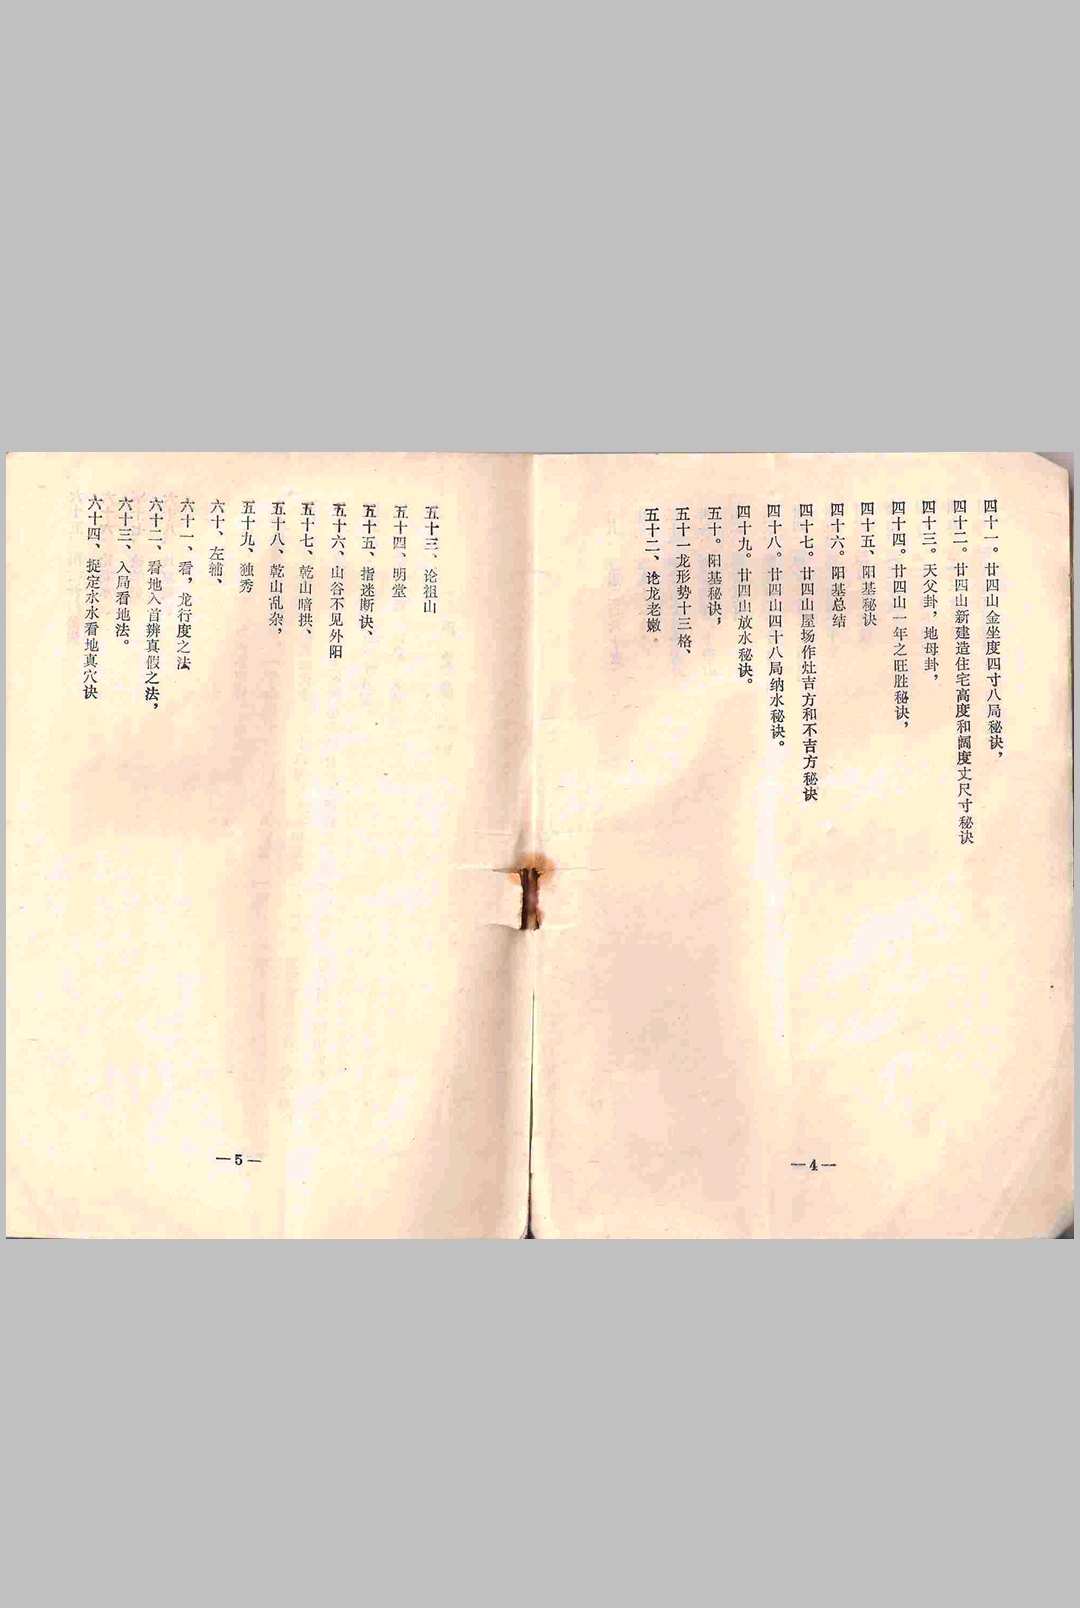 四十一。廿四山金坐度四寸八局秘诀，
四十二。廿四山新建造住宅高度和阔度丈尺寸秘诀
四十三。天父卦，地母卦，
四十四。廿四山一年之旺胜秘诀，
四十五、阳基秘诀
四十六。阳基总结
四十七。廿四山屋场作灶吉方和不吉方秘诀
四十八。廿四山四十八局纳水秘诀。
四十九。廿四山放水秘诀。
五十。阳基秘诀，
五十一龙形势十三格、
五十二、论龙老嫩。
—4—
五十三、论祖山
五十四、明堂
五十五、指迷断诀、
五十六、山谷不见外阳
五十七、乾山暗拱、
五十八、乾山乱杂，
五十九、独秀
六十、左辅、
六十一、看，龙行度之法
六十二、看地入首辨真假之法，
六十三、入局看地法。
六十四、捉定水水看地真穴诀
—5—